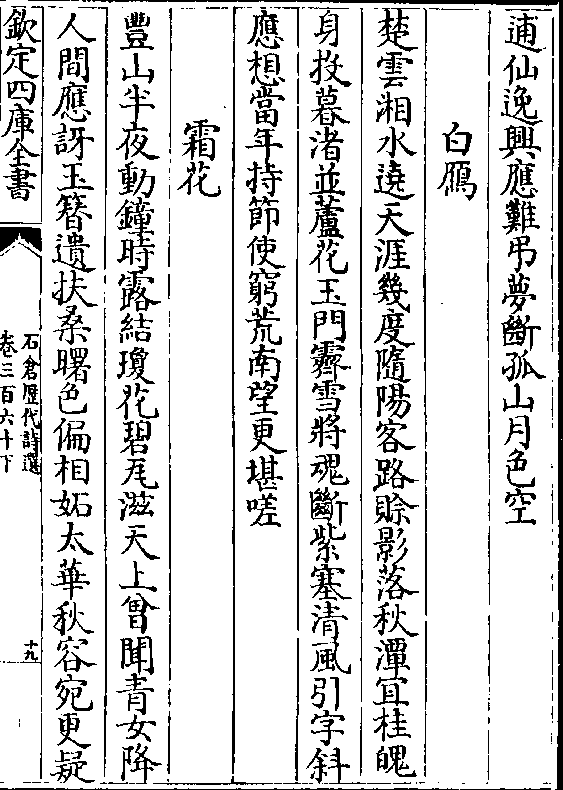 逋仙逸興應難弔夢斷孤山月色空
白鴈
楚雲湘水遶天涯幾度隨陽客路賒影落秋潭宜桂魄
身投暮渚並蘆花玉門霽雪將魂斷紫塞清風引字斜
應想當年持節使窮荒南望更堪嗟
霜花
豐山半夜動鐘時露結瓊花碧瓦滋天上曾聞青女降
人間應訝玉簪遺扶桑曙色偏相妬太華秋容宛更疑
欽定四庫全書
石倉歷代詩選
卷三百六十下
十九